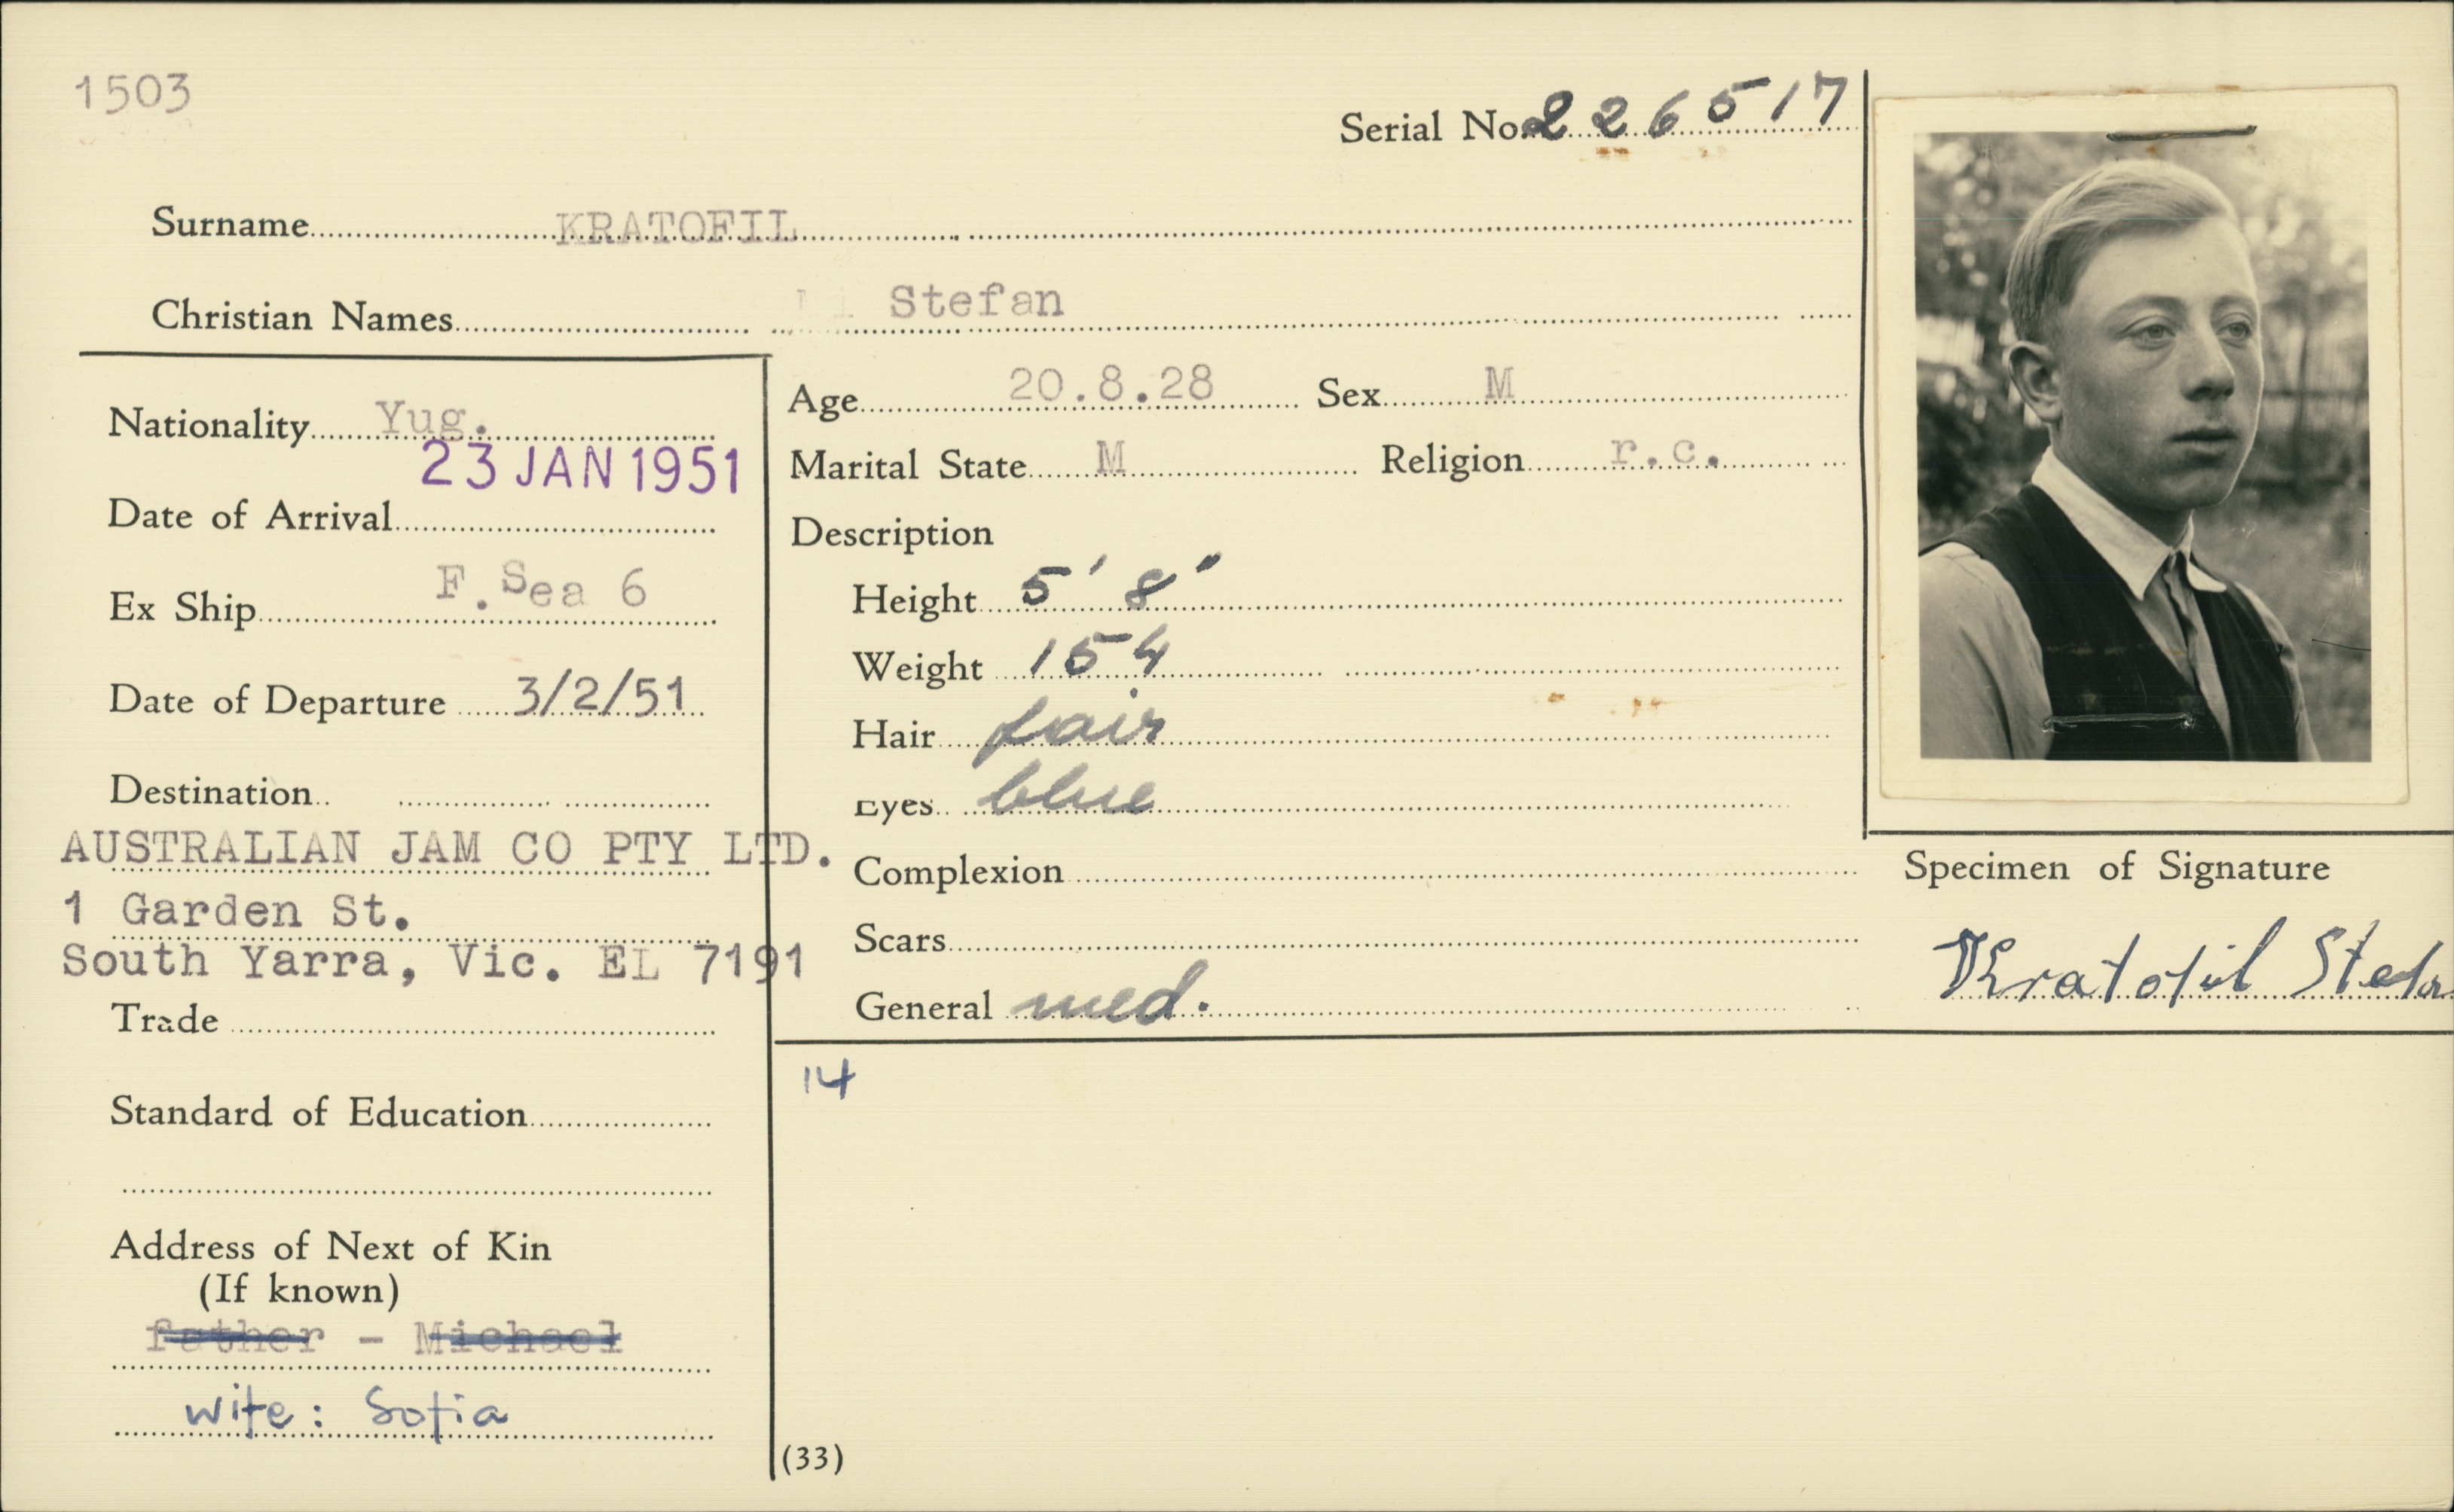 1503
Serial No. 226517
Surname KRATOFIL
Christian Names Stefan
Nationality Yug.
23 JAN 1951
Date of Arrival
Ex Ship F.Sea 6
Date of Departure 3/2/51
Destination
AUSTRALIAN JAM CO PTY LTD.
1 Garden St.
South Yarra, Vic. EL 7191
Trade
Standard of Education
Address of Next of Kin
(If known)
father - Michael
wife: Sofia
Age 20.8.28 Sex M
Marital State M Religion r.c.
Description
Height 5' 8"
Weight 154
Hair fair
Eyes blue
Complexion
Scars
General med.
14
(33)
Specimen of Signature
Kratofil Stefan